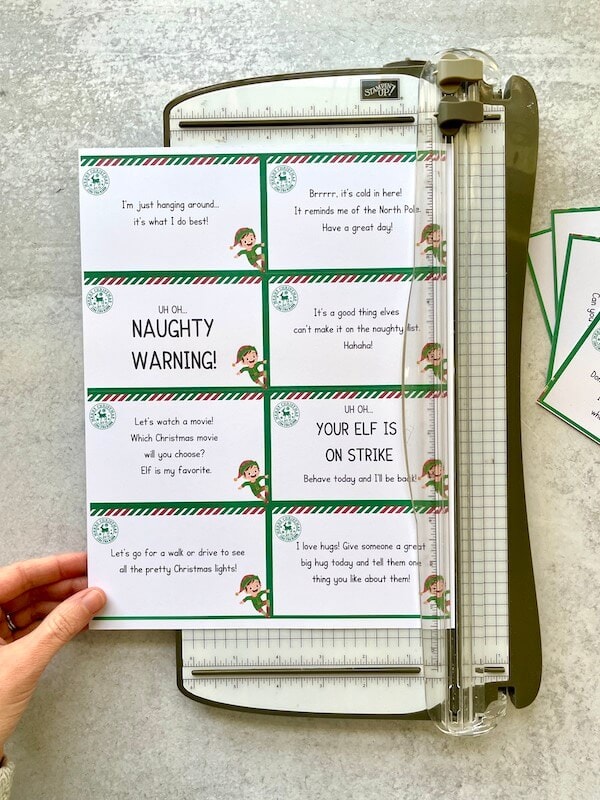 STAMPIN' UP!
I'm just hanging around...
it's what I do best!
Brrrrr, it's cold in here!
It reminds me of the North Pole.
Have a great day!
UH OH...
NAUGHTY
WARNING!
It's a good thing elves
can't make it on the naughty list.
Hahaha!
Let's watch a movie!
Which Christmas movie
will you choose?
Elf is my favorite.
UH OH...
YOUR ELF IS
ON STRIKE
Behave today and I'll be back!
Let's go for a walk or drive to see
all the pretty Christmas lights!
I love hugs! Give someone a great
big hug today and tell them one
thing you like about them!
Can